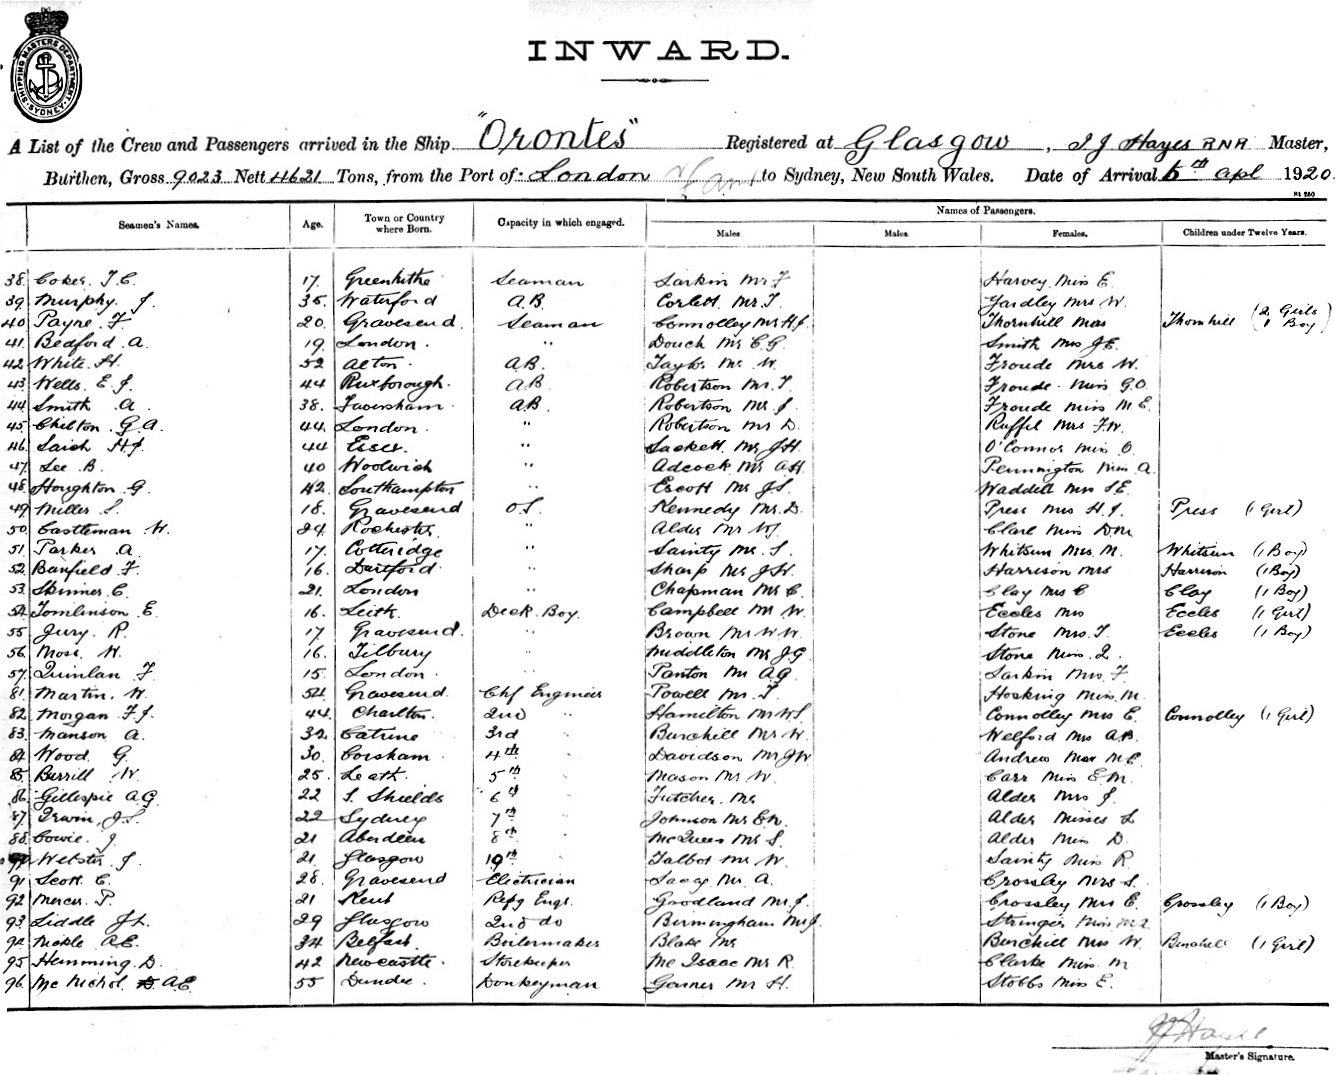 SHIPPING MASTERS DEPARTMENT SYDNEY
INWARD.
A List of the Crew and Passengers arrived in the Ship "Orontes" Registered at Glasgow, J J Hayes RNR Master,
Burthen, Gross 9023 Nett 4621 Tons, from the Port of London to Sydney, New South Wales. Date of Arrival 5th Apl 1920.
Names of Passengers.
Seamen's Names. Age. Town or Country where Born. Capacity in which engaged. Males. Males. Females. Children under Twelve Years.
38. Coker. T.C. 17. Greenhithe Seaman Larkin Mr F Harvey Miss E.
39. Murphy J. 35. Waterford A.B. Corlett Mr T. Yardley Mrs W.
40. Payne. F 20. Gravesend. Seaman Connolley Mr H.J. Thornhill Mrs Thornhill (2 Girls 1 Boy)
41. Bedford. A. 19 London. " Douch Mr C.G. Smith Mrs J.E.
42. White. H. 52 Acton. A.B. Taylor Mr. W. Froude Mrs W.
43. Wells. E J. 44 Ruxborough. A.B Robertson Mr. T. Froude. Miss G.O.
44. Smith A. 38. Faversham. A.B. Robertson Mr. J. Froude Miss M.E.
45. Chilton. G.A. 44. London. " Robertson Mr D. Ruffel Mrs F.W.
46. Saich H.J. 44 Essex. " Sackett Mr J.H. O'Connor Miss O.
47. Lee B. 40 Woolwich " Adcock Mr A.H. Pennington Miss A.
48. Houghton. G. 42. Southampton " Escott Mr J.S. Waddell Mrs S.E.
49. Miller S. 18. Gravesend O.S. Kennedy Mr. D. Press Mrs H.J. Press (1 Girl)
50. Castleman W. 24. Rochester " Alder Mr W.J. Clark Miss D.M.
51. Parker A. 17. Cotteridge " Sainty Mr. S. Whitsun Mrs. M. Whitsun (1 Boy)
52. Banfield F 16. Dartford. " Sharp Mr J.H. Harrison Mrs Harrison (1 Boy)
53. Skinner C. 21. London " Chapman Mr C. Clay Mrs C Clay (1 Boy)
54. Tomlinson. E. 16. Leith Deck Boy. Campbell Mr W. Eccles Mrs Eccles (1 Girl)
55. Jury. R. 17 Gravesend. " Brown Mr W.W. Stone Mrs. T. Eccles (1 Boy)
56. Moss. W. 16. Tilbury " Middleton Mr J.G. Stone Miss. I.
57. Quinlan F 15. London. " Panton Mr A.G. Larkin Mrs. F.
81. Martin. W. 54. Gravesend. Chf Engineer Powell Mr. T Hosking Miss. M.
82. Morgan F.J. 44. Charlton. 2nd " Hamilton Mr W.S. Connolley Mrs E. Connolley (1 Girl)
83. Manson A. 32. Catrine 3rd " Burchell Mr. W. Welford Mrs A.B.
84. Wood G. 30. Corsham. 4th " Davidson Mr J.W. Andrew Mrs M.E.
85. Burrill W. 25. Leith. 5th " Mason Mr W. Carr Miss E.M.
86. Gillespie A.G. 22 S. Shields 6th " Futcher Mr Alder Mrs J.
87. Irwin, J.S. 22 Sydney 7th " Johnson Mr E.W. Alder Misses L
88. Cowie. J. 21 Aberdeen 8th " McQueen Mr S. Alder Miss D.
Webster J. 21. Glasgow 10th " Talbot Mr W. Sainty Miss R.
91. Scott C. 28. Gravesend Electrician Lacey Mr. A. Crossley Mrs S.
92. Mercer. P. 21 Kent Refg Engr. Goodland Mr. J. Crossley Mrs E. Crossley (1 Boy)
93. Liddle J.L. 29 Glasgow 2nd do Birmingham Mr J. Stringer Miss M.
94. Meikle A.E. 34 Belfast. Boilermaker Blake Mr Burchell Mrs W. Burchell (1 Girl)
95. Hemming. D. 42 Newcastle. Storekeeper Mc Isaac Mr R. Clarke Miss. M
96. Mc Nichol A.E. 55 Dundee. Donkeyman Garner Mr H. Stobbs Miss E.
J J Hayes
Master's Signature.